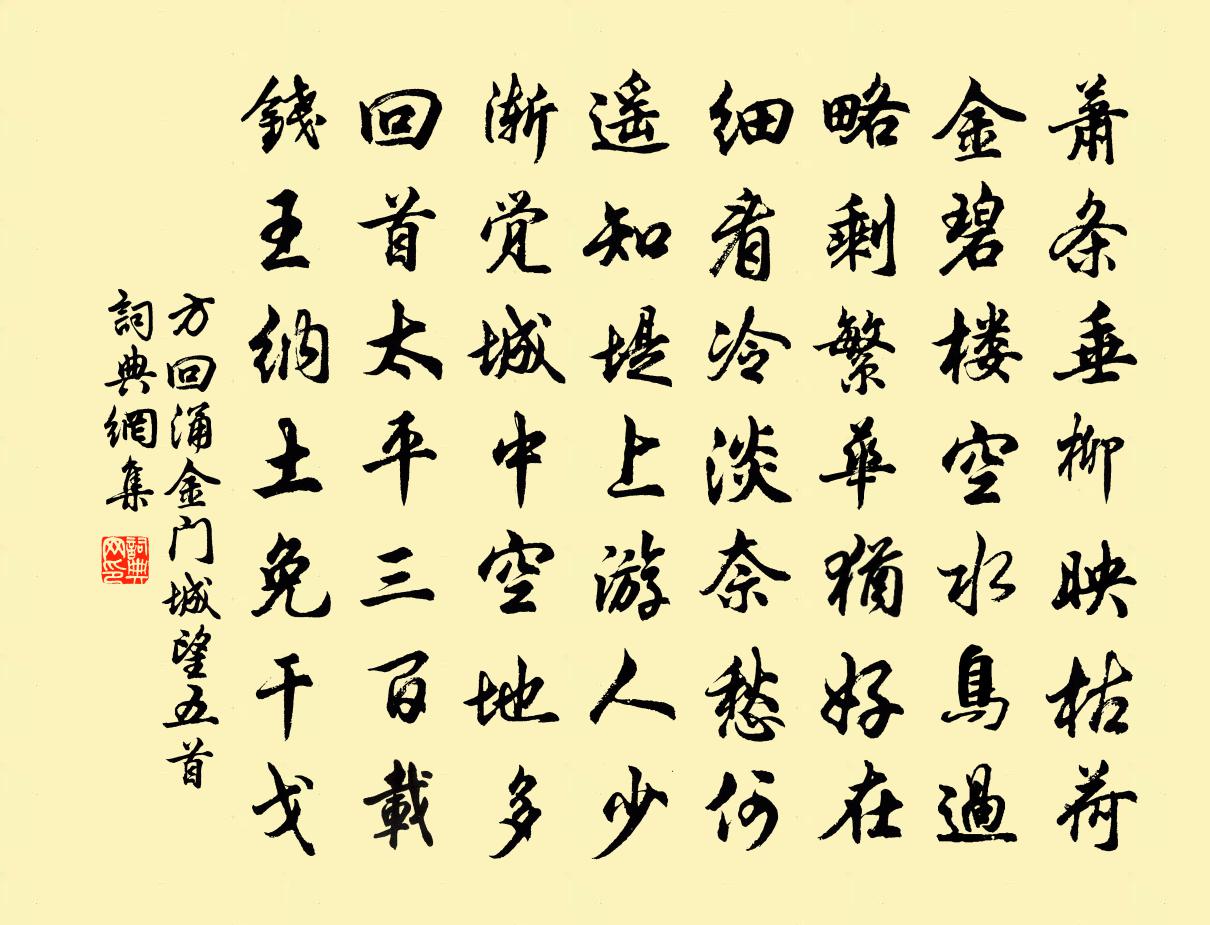 蕭条垂柳映枯荷
金碧楼空水鳥過
略剩繁華猶好在
细看冷淡奈愁何
遥知堤上游人少
渐觉城中空地多
回首太平三百載
錢王纳土免干戈
方回涌金门城望五首
詞典網集
詞典网印